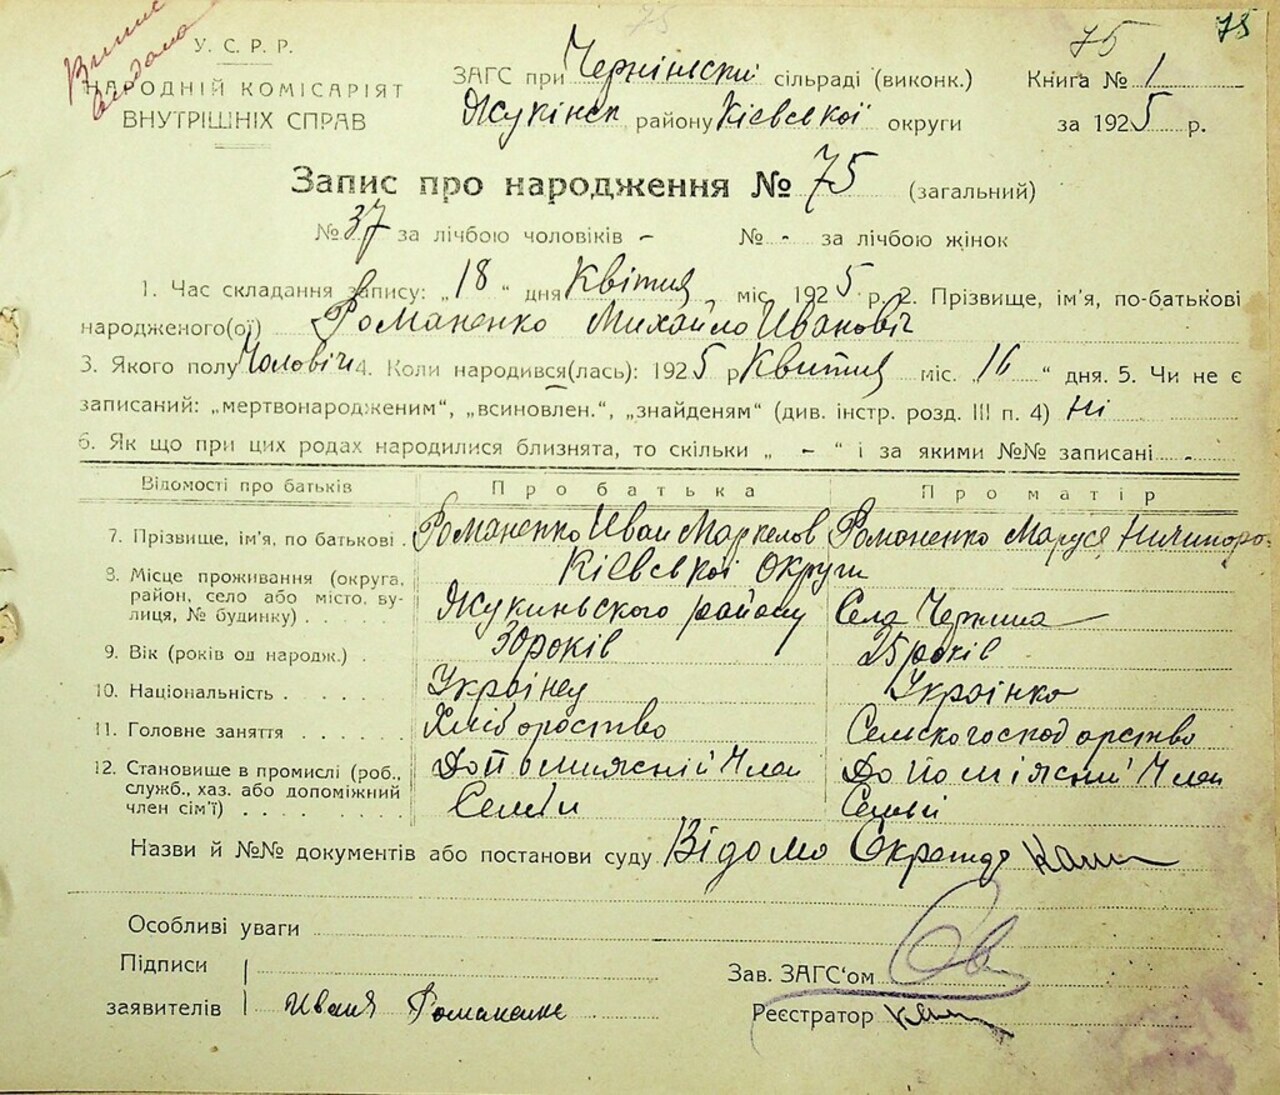 75
75
75
У. С. Р. Р.
НАРОДНІЙ КОМІСАРІЯТ
ВНУТРІШНІХ СПРАВ
ЗАГС при Чернінскій сільраді (виконк.)
Жукінск району Кієвської округи
Книга № 1
за 1925 р.
Запис про народження № 75 (загальний)
№ 37 за лічбою чоловіків - № - за лічбою жінок
1. Час складання запису: „18“ дня Квітня міс. 1925 р. 2. Прізвище, ім'я, по-батькові
народженого(ої) Романенко Михайло Ивановіч
3. Якого полу Чоловіч 4. Коли народився(лась): 1925 р Квитня міс. „16“ дня. 5. Чи не є
записаний: „мертвонародженим“, „всиновлен.“, „знайденям“ (див. інстр. розд. III п. 4) Ні
6. Як що при цих родах народилися близнята, то скільки „ - “ і за якими №№ записані -
Відомості про батьків Про батька Про матір
7. Прізвище, ім'я, по батькові . Романенко Иван Маркелов Романенко Маруся Ничипоро-
8. Місце проживання (округа, район, село або місто, вулиця, № будинку) . . . . .
Кієвської Округи
Жукиньского району Села Чернина
9. Вік (років од народж.) . 30 років 25 років
10. Національність . . . . . Українец Українко
11. Головне заняття . . . . . . Хліборотво Селскогосподарство
12. Становище в промислі (роб., служб., хаз. або допоміжний член сім'ї) . . . .
Член Член
Семьи Семьи
Назви й №№ документів або постанови суду Відомо
Особливі уваги
Підписи
заявителів Иваня Романенко
Зав. ЗАГС'ом
Реєстратор